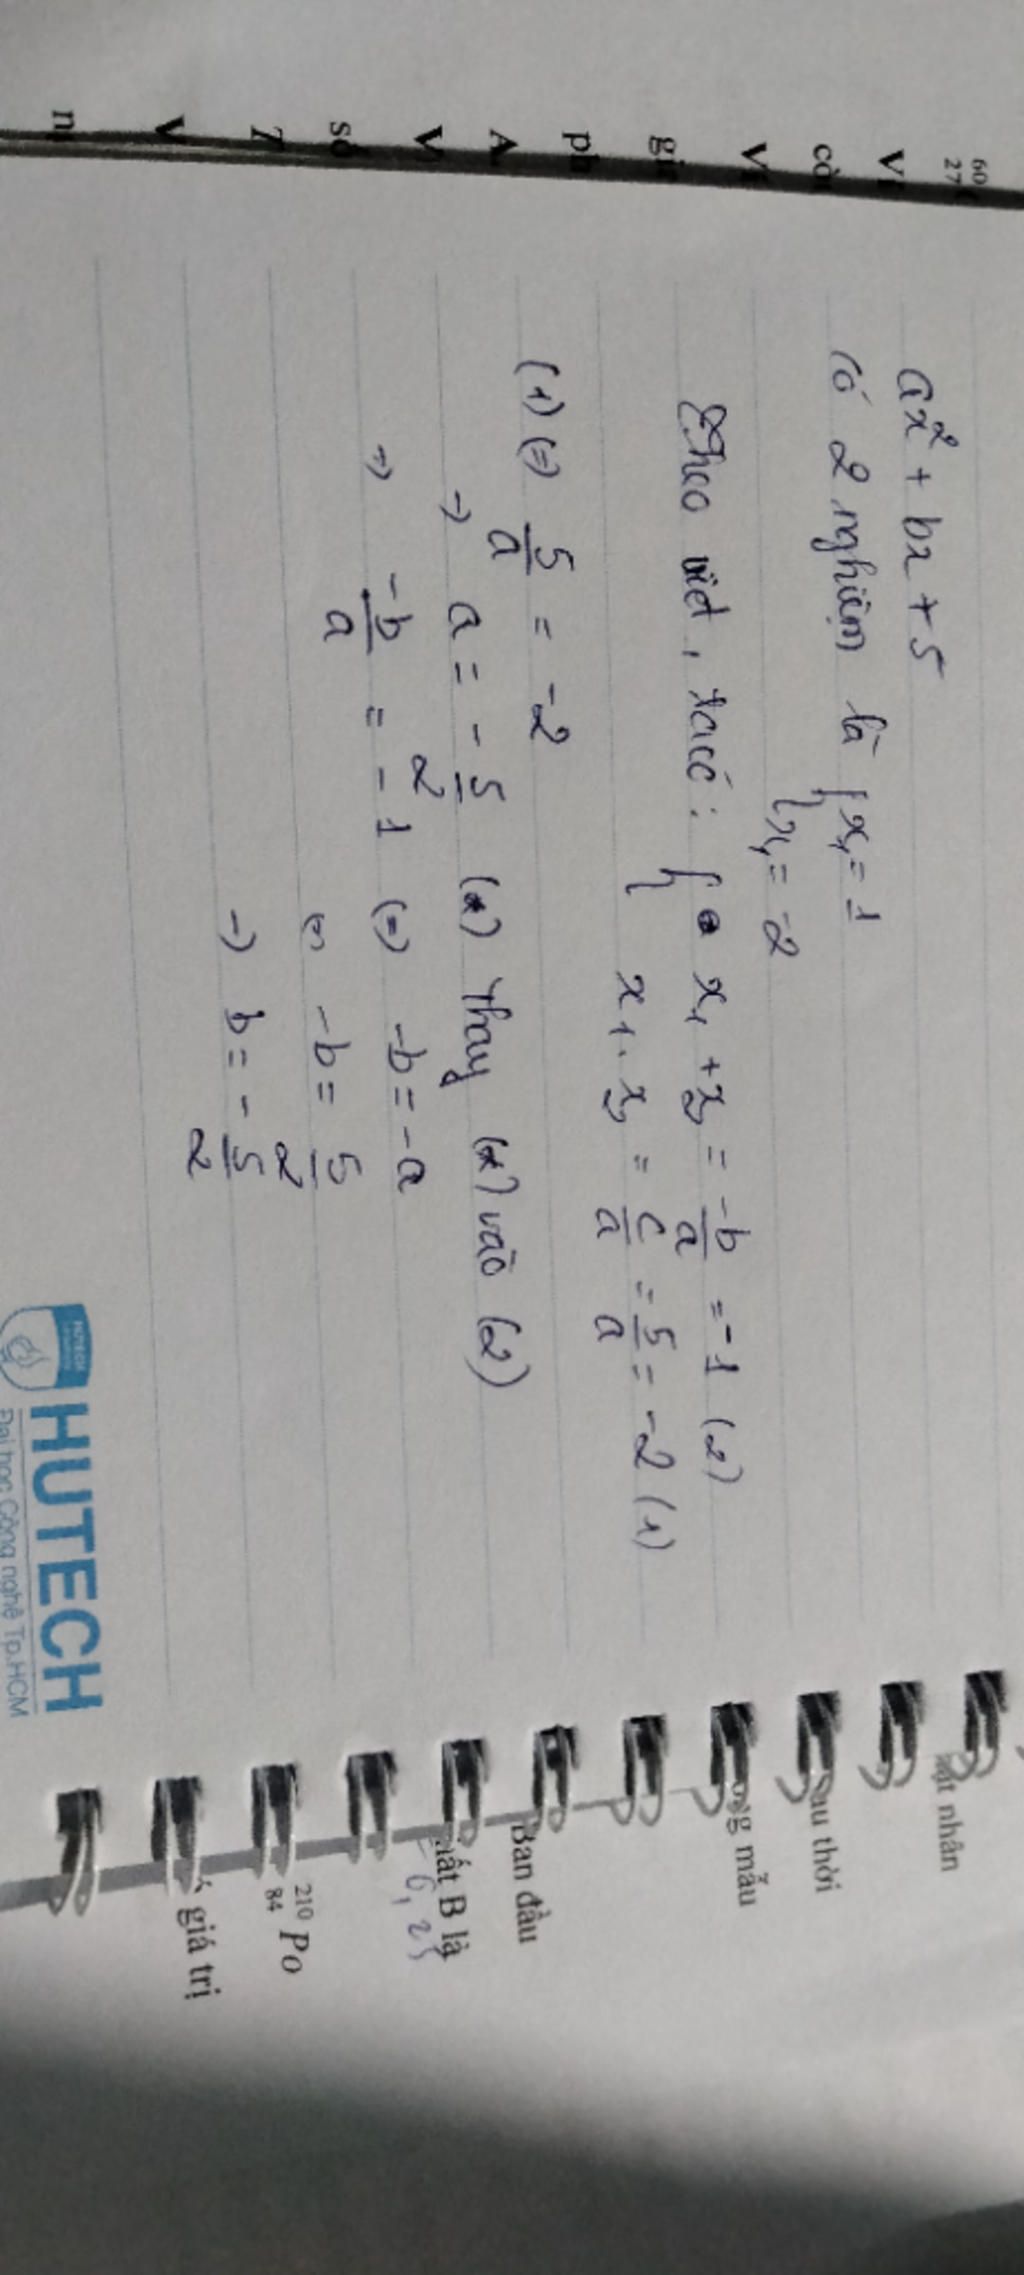 ax² + bx + 5
có 2 nghiệm là { x₁ = 1
x₁ = -2
Theo viet, ta có: { x₁ + x₂ = -b/a = -1 (2)
x₁ . x₂ = c/a = 5/a = -2 (1)
(1) (=) 5/a = -2
-) a = -5/2 (*) Thay (*) vào (2)
=) -b/a = -1 (=) -b = -a
(=) -b = 5/2
-) b = -5/2
HUTECH
Đại học Công nghệ Tp.HCM
60
27
V
V
gi
ph
A
V
số
V
n
nhân
thời
mẫu
Ban đầu
B là
= 6,25
²¹⁰₈₄Po
giá trị